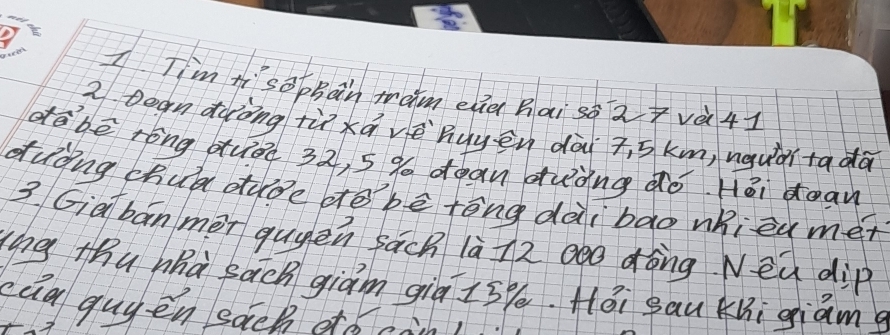 1. Tìm tỉ số phần trăm của hai số 27 và 41
2. Đoạn đường từ xã về huyện dài 7,5 km, người ta đã
đổ bê tông được 32,5 % đoạn đường đó. Hỏi đoạn
đường chưa được đổ bê tông dài bao nhiêu mét
3. Giá bán một quyển sách là 12 000 đồng. Nếu dịp
thu nhà sách giảm giá 15%. Hỏi sau khi giảm
của quyển sách đó còn